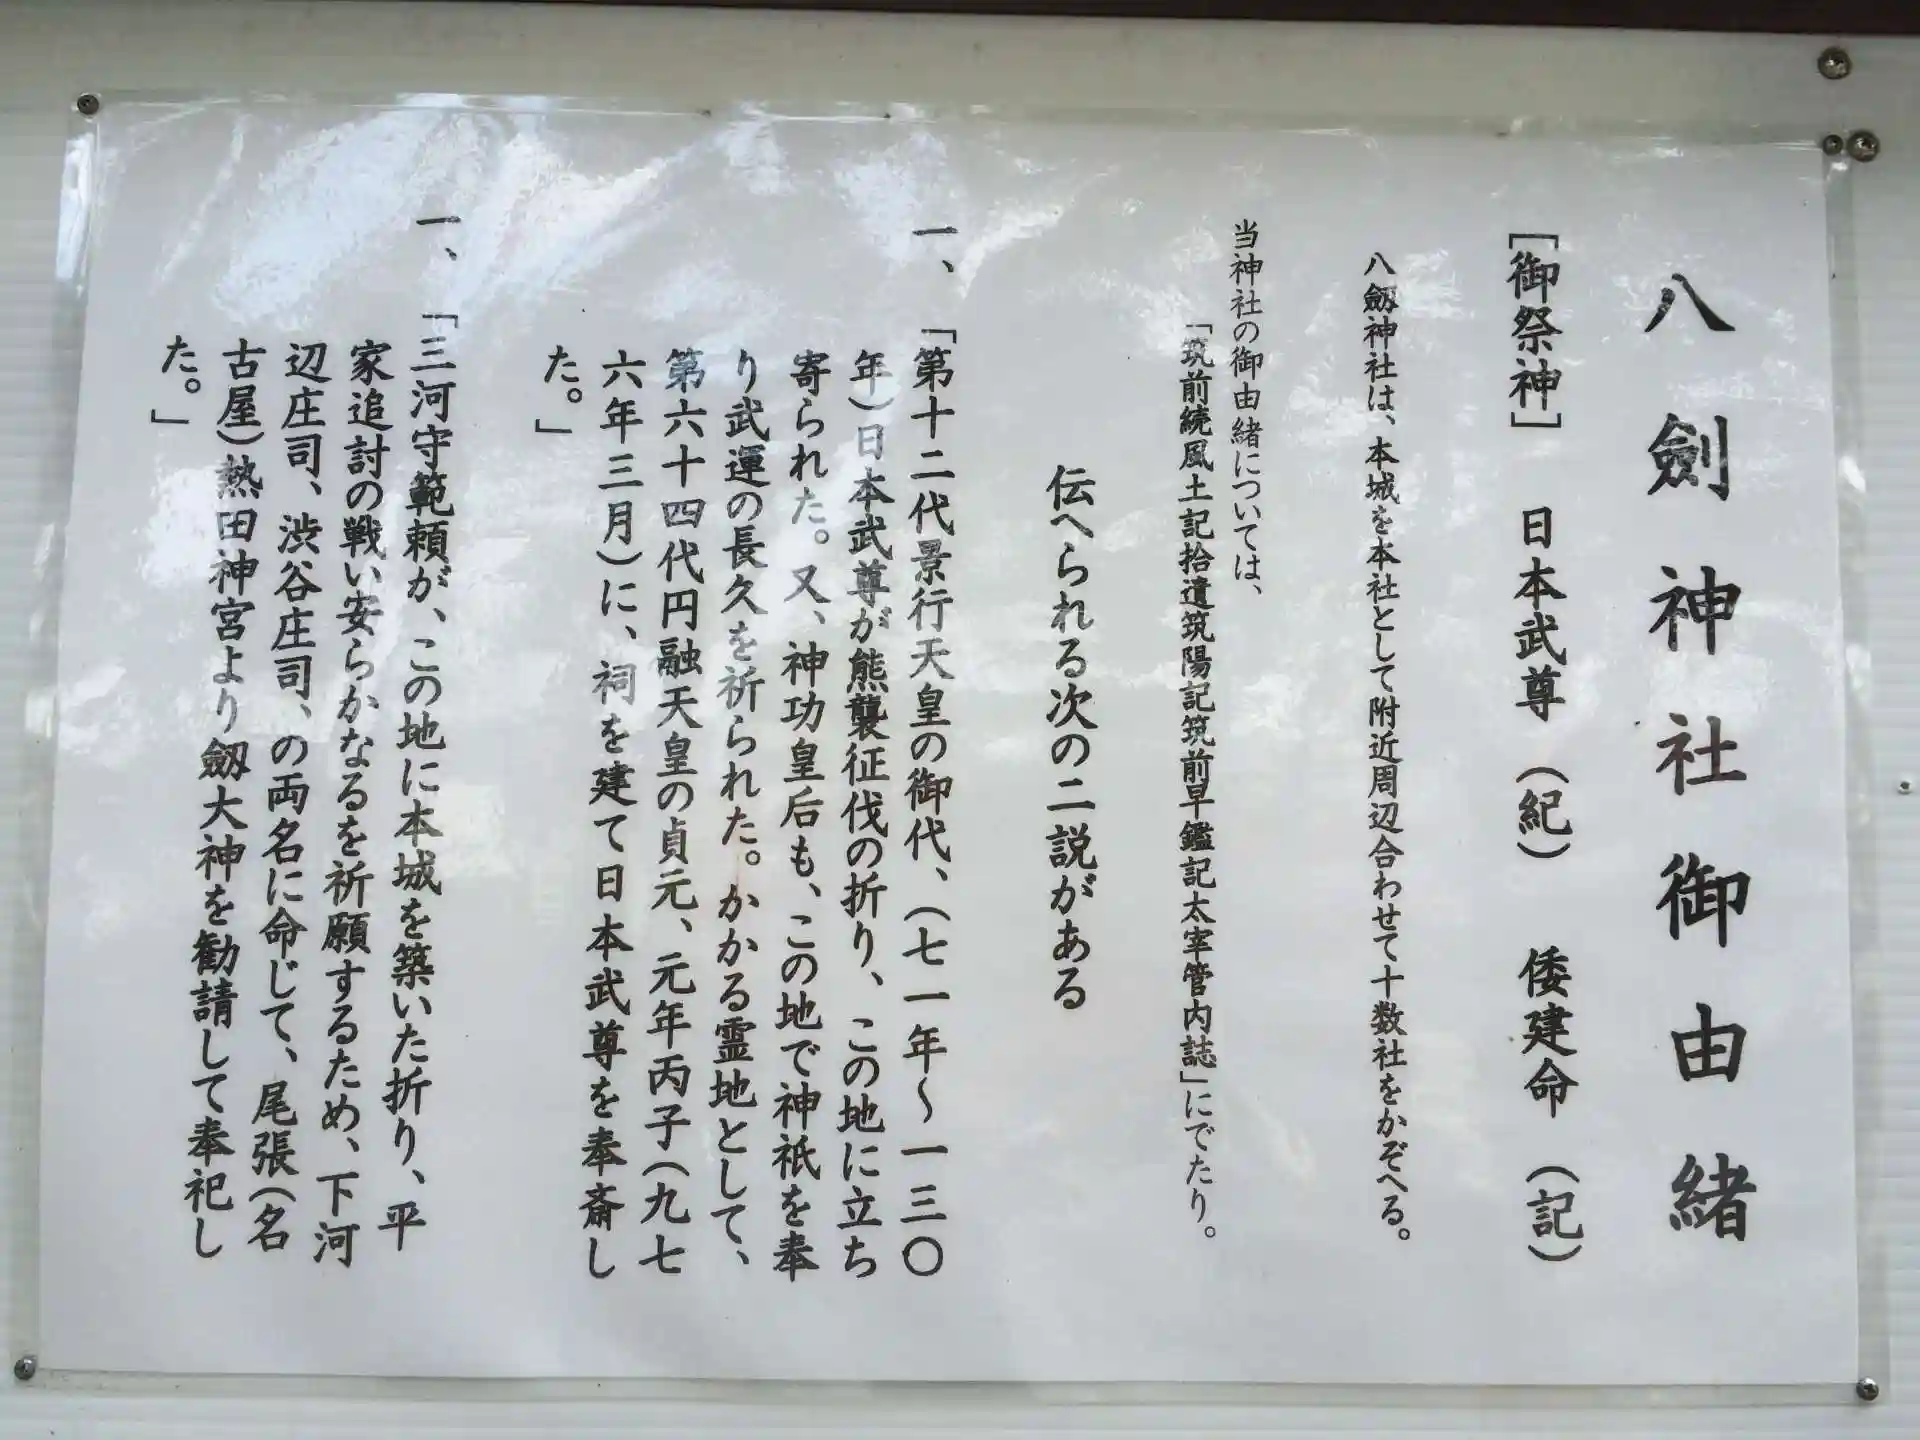 八劍神社御由緒
［御祭神］　日本武尊（紀）　倭建命（記）
八劔神社は、本城を本社として附近周辺合わせて十数社をかぞへる。
当神社の御由緒については、
「筑前続風土記拾遺筑陽記筑前早鑑記太宰管内誌」にでたり。
伝へられる次の二説がある
一、「第十二代景行天皇の御代、（七一年～一三〇
年）日本武尊が熊襲征伐の折り、この地に立ち
寄られた。又、神功皇后も、この地で神祇を奉
り武運の長久を祈られた。かかる霊地として、
第六十四代円融天皇の貞元、元年丙子（九七
六年三月）に、祠を建て日本武尊を奉斎し
た。」
一、「三河守範頼が、この地に本城を築いた折り、平
家追討の戦い安らかなるを祈願するため、下河
辺庄司、渋谷庄司、の両名に命じて、尾張（名
古屋）熱田神宮より劔大神を勧請して奉祀し
た。」